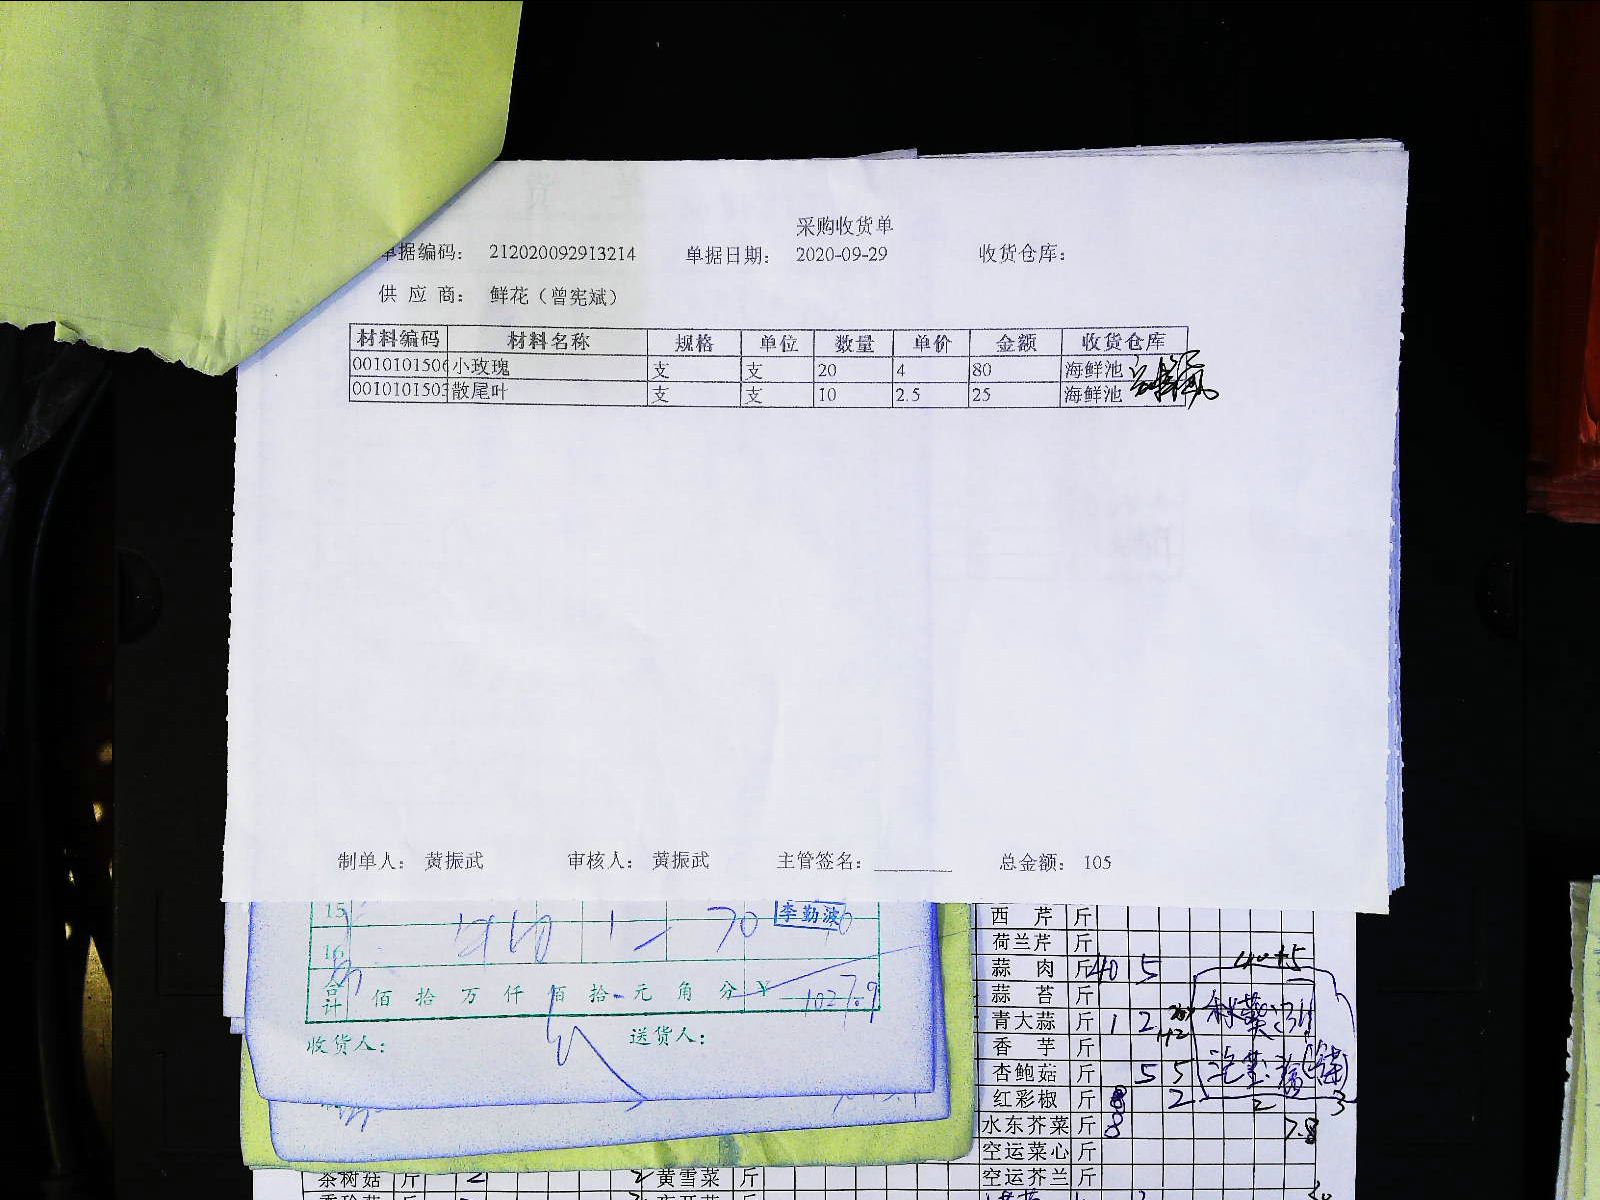 采购收货单
单据编码： 212020092913214 单据日期： 2020-09-29 收货仓库：
供 应 商： 鲜花（曾宪斌）
材料编码 材料名称 规格 单位 数量 单价 金额 收货仓库
001010150 小玫瑰 支 支 20 4 80 海鲜池
001010150 散尾叶 支 支 10 2.5 25 海鲜池
制单人： 黄振武 审核人： 黄振武 主管签名： 总金额： 105
15 70 李勤波
16
合计 佰 拾 万 仟 佰 拾 元 角 分 ¥ 1027.9
收货人： 送货人：
西 芹 斤
荷兰芹 斤
蒜 肉 斤 40 5 40+5
蒜 苔 斤
青大蒜 斤 1 2
香 芋 斤
杏鲍菇 斤 5 5
红彩椒 斤 8 2 2 3
水东芥菜 斤 8 7.8
空运菜心 斤
空运芥兰 斤
茶树菇 斤 2 2 黄雪菜 斤